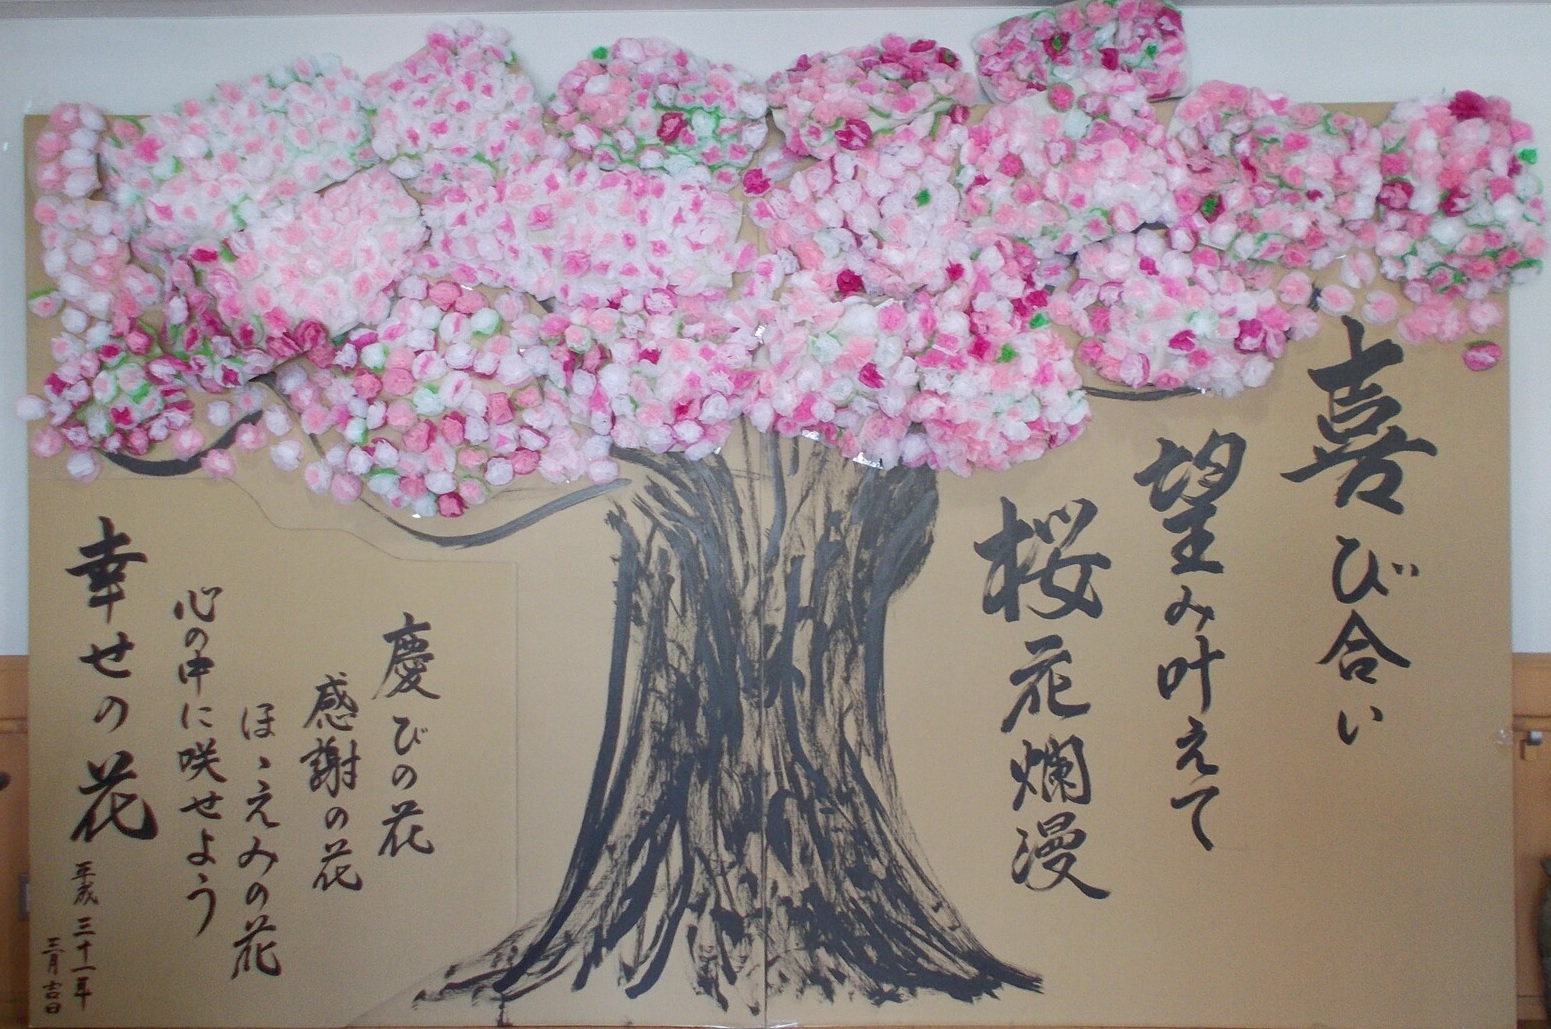 喜び合い
望み叶えて
桜花爛漫
慶びの花
感謝の花
ほゝえみの花
心の中に咲せよう
幸せの花
平成三十一年
三月吉日